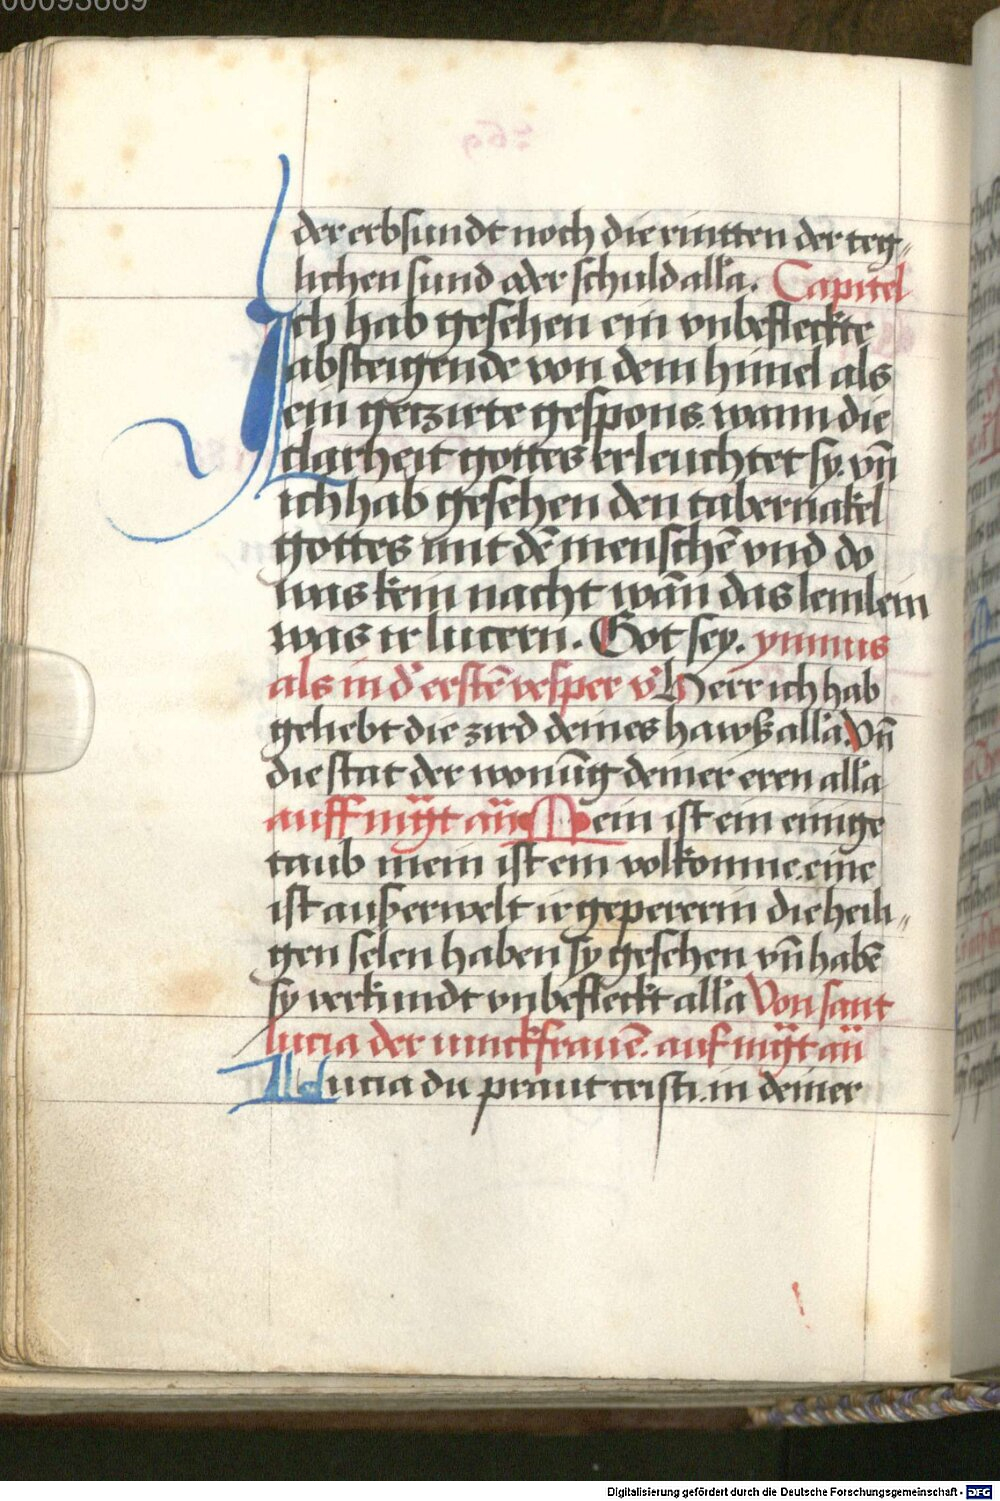 der erbsundt noch die rintten der teg„
lichen sund oder schuld alla. Capitel
Ich hab gesehen ein vnbefleckte
absteigende von dem himel als
ein getzirte gespons. wann die
clarheit gottes erleuchtet sy. vn̄
ich hab gesehen den tabernakel
gottes mit dē menschē vnd do
was kein nacht wān das lemlein
was ir lucern. Got sey. ymnus
als in d' erstē vesper v' Herr ich hab
geliebt die zird deines hawß alla Vn̄
die stat der wonūg deiner eren alla
auff mgt̄ an̄ Mein ist ein einige
taub mein ist ein volkomme. eine
ist außerwelt ir gepererin die heili„
gen selen haben sy gesehen vn̄ habē
sy verkundt vnbefleckt alla Von sant
lucia der iunckfrauē. auf mgt̄ an̄
Lucia du praut cristi. in deiner
Digitalisierung gefördert durch die Deutsche Forschungsgemeinschaft - DFG